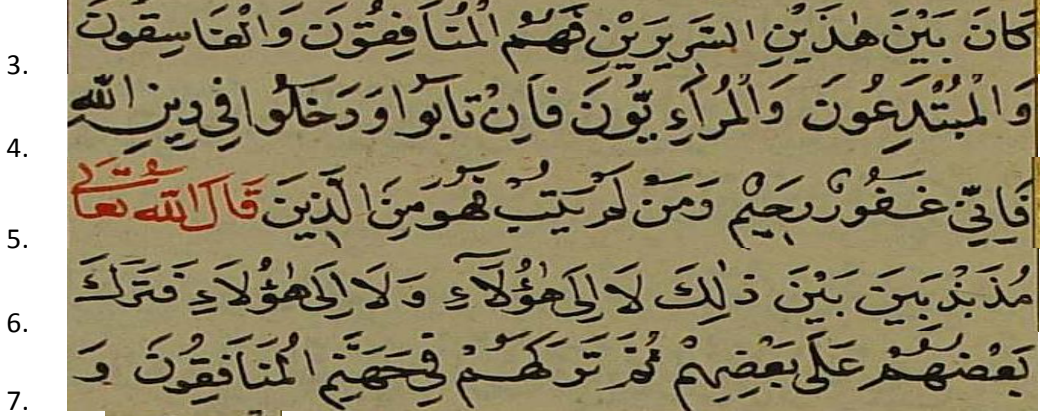 3. كَانَ بَيْنَ هٰذَيْنِ السَّرِيرَيْنِ فَهُمُ الْمُنَافِقُونَ وَالْفَاسِقُونَ
4. وَالْمُبْتَدِعُونَ وَالْمُرَاءِيُّونَ فَاِنْ تَابُوا وَدَخَلُوا فِي دِينِ اللّٰهِ
5. فَاِنِّي غَفُورٌ رَحِيْمٌ وَمَنْ لَمْ يَتُبْ فَهُوَ مِنَ الَّذِينَ قَالَ اللّٰهُ تَعَالَى
6. مُذَبْذَبِينَ بَيْنَ ذٰلِكَ لَا اِلَى هٰؤُلَآءِ وَلَا اِلَى هٰؤُلَاءِ فَتَرَكَ
7. بَعْضُهُمْ عَلَى بَعْضِهِمْ ثُمَّ تَرَكَهُمْ فِي جَهَنَّمِ الْمُنَافِقُونَ وَ